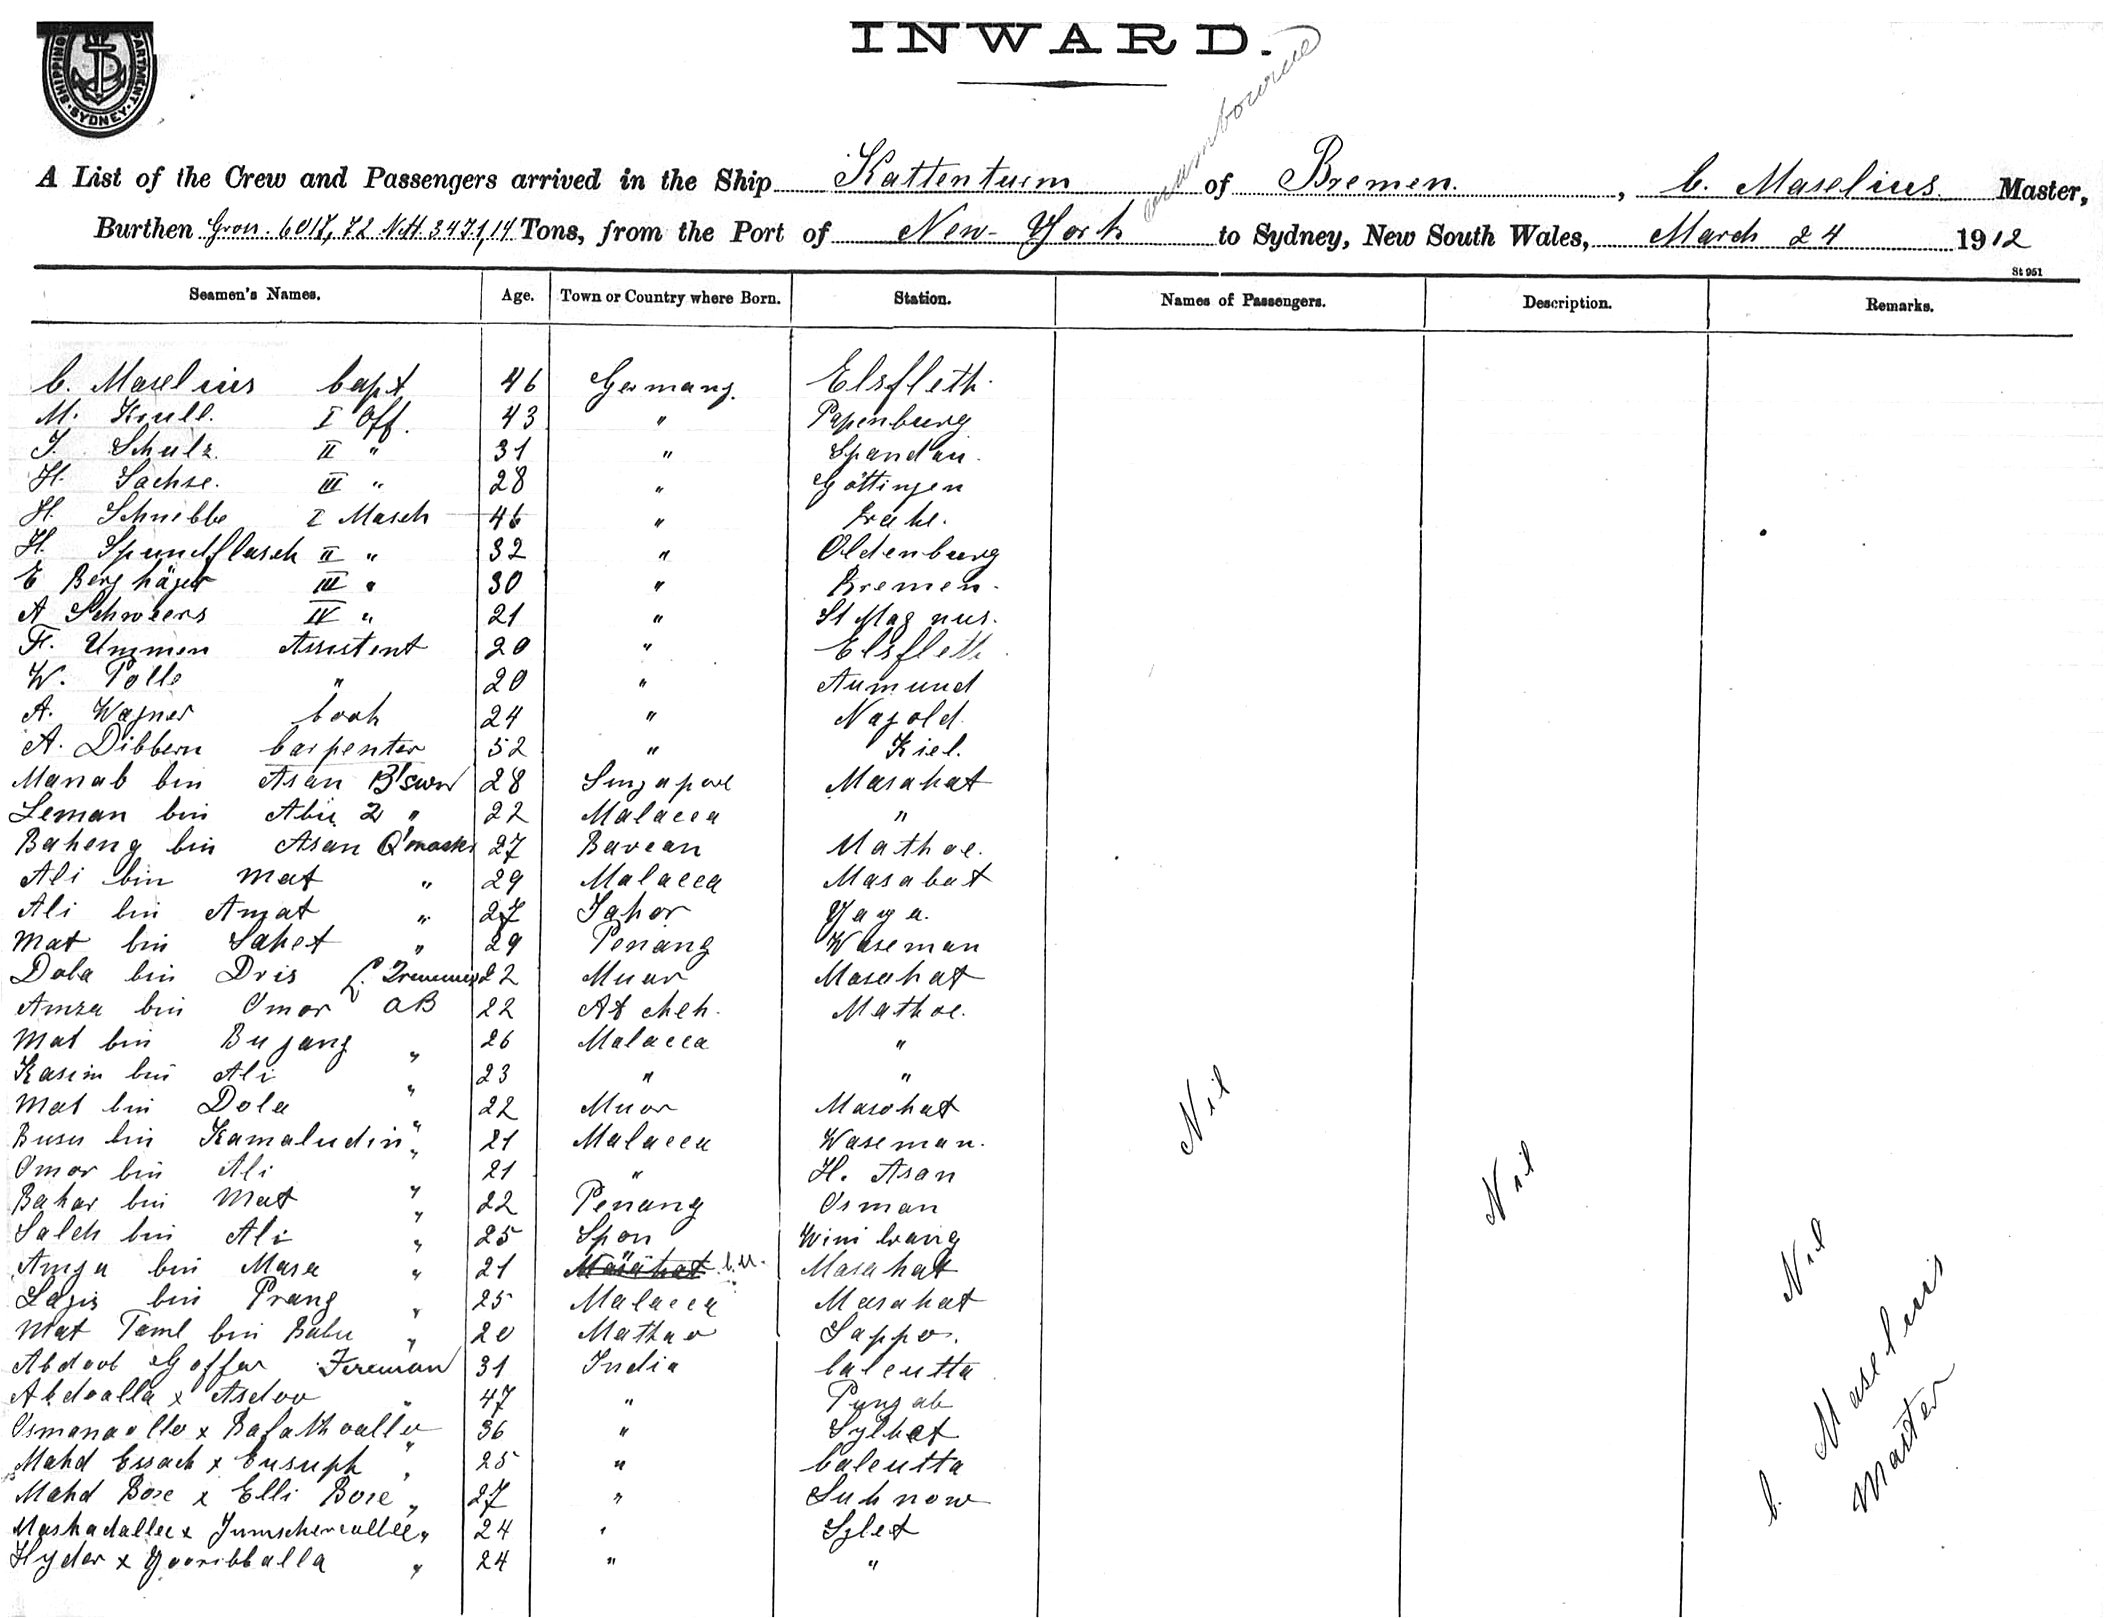 INWARD.
SHIPPING DEPARTMENT. SYDNEY
A List of the Crew and Passengers arrived in the Ship Kattenturm of Bremen. , C. Maselius. Master,
Burthen Gross. 6017,72 Nett 3471,14 Tons, from the Port of New-York to Sydney, New South Wales, March 24 1912
St 951
Seamen's Names. Age. Town or Country where Born. Station. Names of Passengers. Description. Remarks.
C. Maselius Capt 46 Germany. Elsfleth.
M. Krull. I Off. 43 " Papenburg
J. Schulz. II " 31 " Spandau.
H. Sachse. III " 28 " Göttingen
H. Schnibbe I Masch 46 " Brake.
H. Spundflasch II " 32 " Oldenburg
E Berghäger III " 30 " Bremen.
A Schweers IV " 21 " St Magnus.
F. Ummen Assistent 20 " Elsfleth.
W. Polle " 20 " Aumund
A. Wagner Cook 24 " Nagold.
A. Dibbern Carpenter 52 " Kiel.
Manab bin Asan B'swn 28 Singapore Masahat
Leman bin Abu 2 " 22 Malacca "
Baheng bin Asan Q'master 27 Bavean Mathoe.
Ali bin Mat " 29 Malacca Masabat
Ali bin Amat " 27 Johor Yaya.
Mat bin Sahet " 29 Penang Waseman
Dola bin Dris L. Trimmer 22 Muar Masahat
Amza bin Omar AB 22 Atcheh. Mathoe.
Mat bin Bujang " 26 Malacca "
Kasim bin Ali " 23 " "
Mat bin Dola " 22 Muar Masahat
Busu bin Kamaludin " 21 Malacca Waseman.
Omar bin Ali " 21 " H. Asan
Bahar bin Mat " 22 Penang Osman
Saleh bin Ali " 25 Spon Wini
Amza bin Masa " 21 Masahat
Lazis bin Prang " 25 Malacca Masahat
Mat Taml bin Babu " 20 Mathao Sappo.
Abdool Goffar Fireman 31 India Calcutta
Abdoalla x Asdoo " 47 " Punjab
Osmanaolla x Bafathoalla " 36 " Sylhet
Mahd Essack x Eusuph " 25 " Calcutta
Mahd Bose x Elli Bose " 27 " Luhnow
Mashadallee x Jumscherallee " 24 " Sylet
Hyder x Gooribballa " 24 " "
Nil
Nil
Nil
C. Maselius
Master